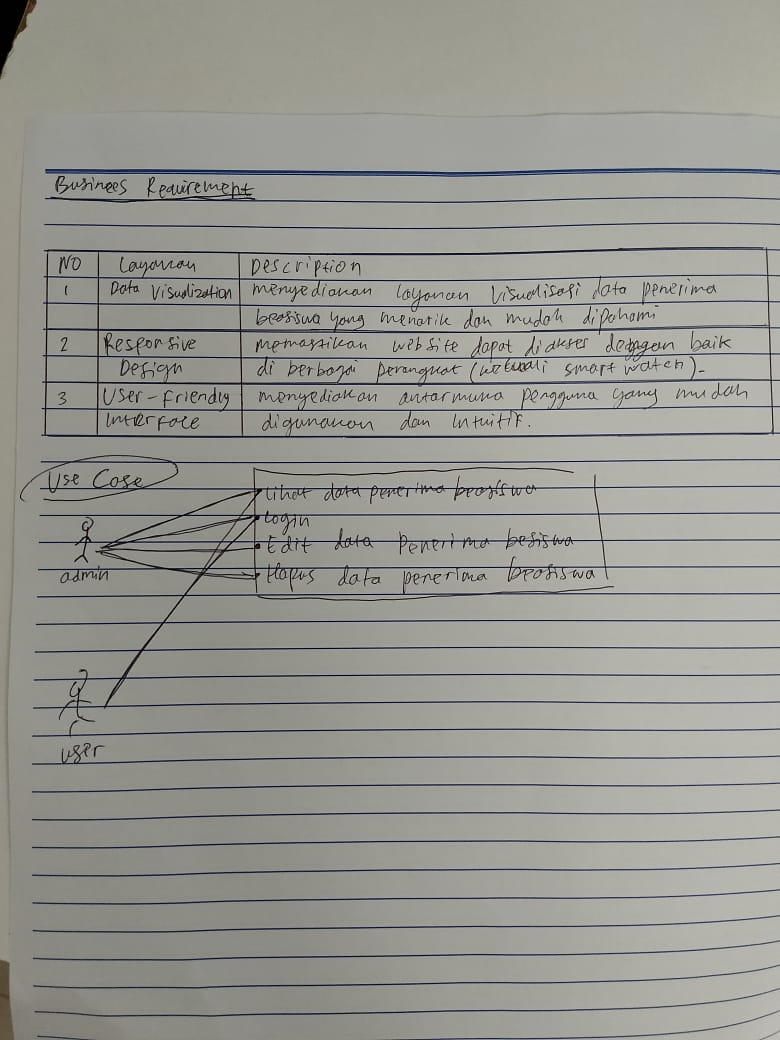 Businees Requirement
NO Layanan Description
1 Data Visualization menyediakan layanan visualisasi data penerima
beasiswa yang menarik dan mudah dipahami
2 Responsive memastikan website dapat diakses dengan baik
Design di berbagai perangkat (kecuali smart watch).
3 User-Friendly menyediakan antarmuna pengguna yang mudah
Interface digunakan dan Intuitif.
Use Case
Lihat data penerima beasiswa
Login
Edit data Penerima besiswa
Hapus data penerima beasiswa
admin
user